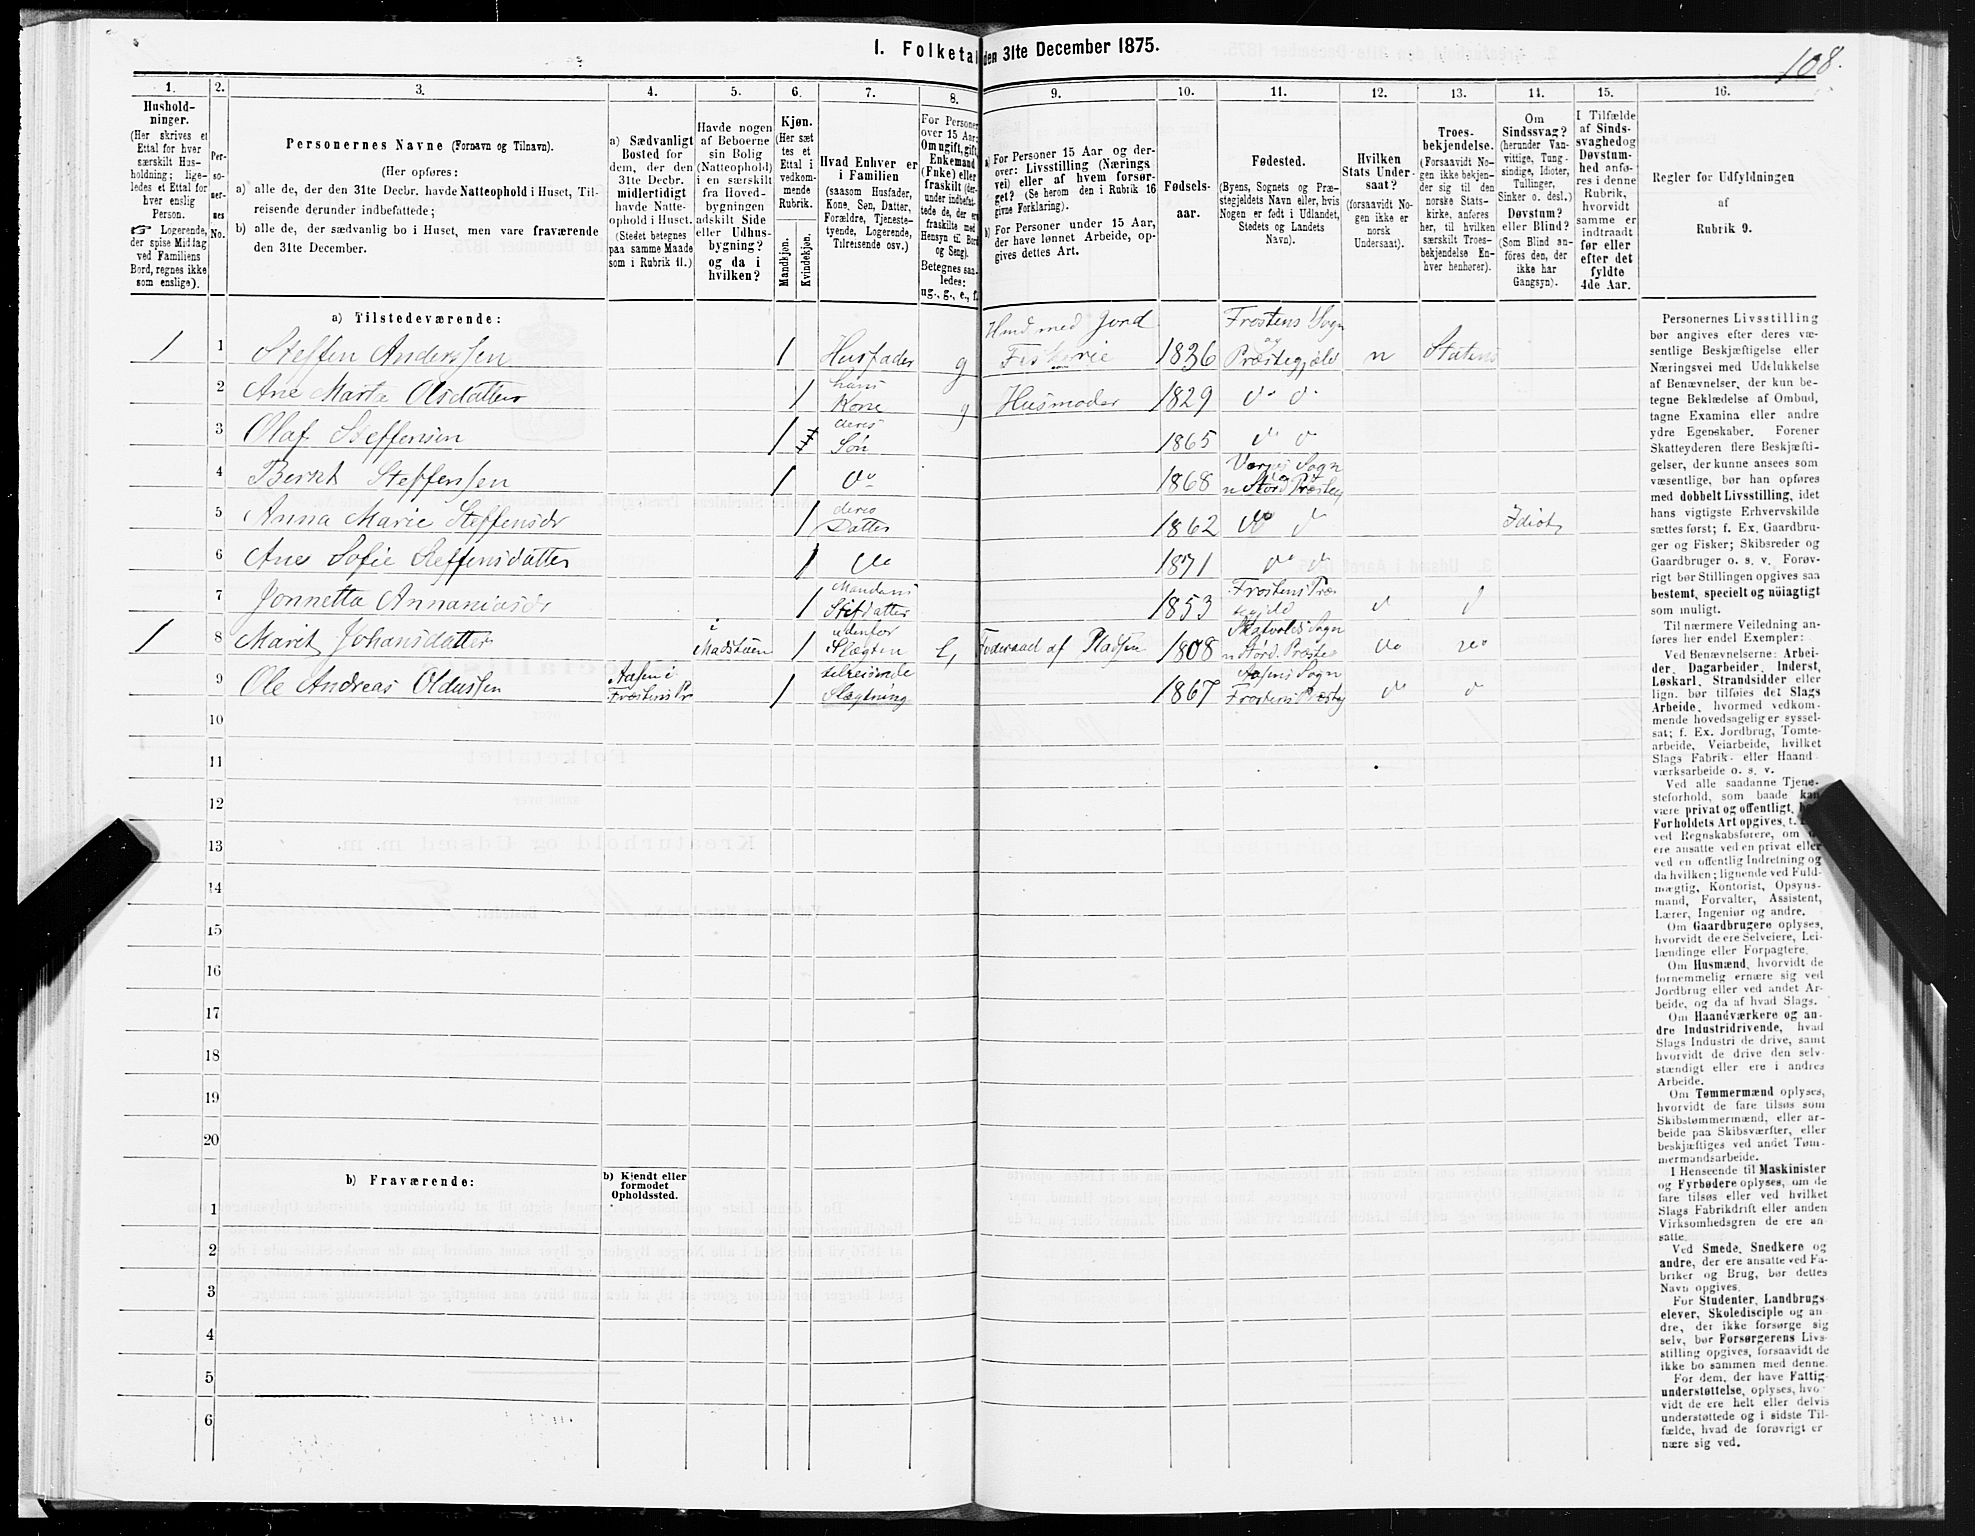 108.
I. Folketal den 31te December 1875.
1. 2. 3. 4. 5. 6. 7. 8. 9. 10. 11. 12. 13. 14. 15. 16.
Hushold-
ninger.
(Her skrives et
Ettal for hver
særskilt Hus-
holdning; lige-
ledes et Ettal for
hver enslig
Person.
☞ Logerende,
der spise Middag
ved Familiens
Bord, regnes ikke
som enslige).
Per-
so-
ner-
nes
No.
Personernes Navne (Fornavn og Tilnavn).
(Her opføres:
a) alle de, der den 31te Decbr. havde Natteophold i Huset, Til-
reisende derunder indbefattede;
b) alle de, der sædvanlig bo i Huset, men vare fraværende
den 31te December.
a) Sædvanligt
Bosted for
dem, der den
31te Decbr.
midlertidigt
havde Natte-
ophold i Huset.
(Stedet betegnes
paa samme Maade
som i Rubrik 11.)
Havde nogen
af Beboerne
sin Bolig
(Natteophold)
i en særskilt
fra Hoved-
bygningen
adskilt Side
eller Udhus-
bygning?
og da i
hvilken?
Kjøn.
(Her sæt
tes et
Ettal i
vedkom-
mende
Rubrik.
Mandkjøn.
Kvindekjøn.
Hvad Enhver er
i Familien
(saasom Husfader,
Kone, Søn, Datter,
Forældre, Tjeneste-
tyende, Logerende,
Tilreisende osv.)
For Personer
over 15 Aar:
Om ugift, gift,
Enkemand
(Enke) eller
fraskilt (der-
under indbefat-
tede de, der er
fraskilte med
Hensyn til Bord
og Seng).
Betegnes saa-
ledes:
ug., g., e., f.
a) For Personer 15 Aar og der-
over: Livsstilling (Nærings
vei) eller af hvem forsør-
get? (Se herom den i Rubrik 16
givne Forklaring).
b) For Personer under 15 Aar,
der have lønnet Arbeide, op-
gives dettes Art.
Fødsels-
aar.
Fødested.
(Byens, Sognets og Præ-
stegjeldets Navn eller, hvis
Nogen er født i Udlandet,
Stedets og Landets
Navn).
Hvilken
Stats Under-
saat?
(forsaavidt No-
gen ikke er
norsk
Undersaat).
Troes-
bekjendelse.
(Forsaavidt No-
gen ikke bekjen-
der sig til den
norske Stats-
kirke, anføres
her, til hvilken
særskilt Troes-
bekjendelse En-
hver henhører).
Om
Sindssvag?
(herunder Van-
vittige, Tung-
sindige, Idioter,
Tullinger,
Sinker o. desl.)
Døvstum?
eller Blind?
(Som Blind an-
føres den, der
ikke har
Gangsyn).
I Tilfælde
af Sinds-
svaghed og
Døvstum-
hed anfø-
res i denne
Rubrik,
hvorvidt
samme er
indtraadt
før eller
efter det
fyldte
4de Aar.
Regler for Udfyldningen
af
Rubrik 9.
a) Tilstedeværende:
1 1 Steffen Anderssen 1 Husfader g med Jord Fiskerie 1836 Frostens Sogn og Præstegjeld n Statens
2 Ane Marta Olsdatter 1 hans Kone g Husmoder 1829 do do
3 Olaf Steffensen 1 deres Søn 1865 do do
4 Bernt Steffensen 1 do 1868 Sogn
5 Anna Marie Steffensdr 1 deres Datter 1862 do do Idiot
6 Ane Sofie Steffensdatter 1 do 1871 do do
7 Jonnetta Annaniasdr 1 Mandens Stifdatter 1853 Frostens Præstegjeld do do
1 8 Marit Johansdatter i Madstuen 1 udenfor Slægten e, Føderaad af Pladsen 1808 Skatvolds Sogn do do
9 Ole Andreas Oldussen Aasen i Frostens Pr 1 tilreisende Slægtning 1867 Aasens Sogn Frostens Præsteg do do
10
11
12
13
14
15
16
17
18
19
20
b) Fraværende:
b) Kjendt eller
formodet
Opholdssted.
1
2
3
4
5
6
Personernes Livsstilling
bør angives efter deres væ-
sentlige Beskjæftigelse eller
Næringsvei med Udelukkelse
af Benævnelser, der kun be-
tegne Beklædelse af Ombud,
tagne Examina eller andre
ydre Egenskaber. Forener
Skatteyderen flere Beskjæfti-
gelser, der kunne ansees som
væsentlige, bør han opføres
med dobbelt Livsstilling, idet
hans vigtigste Erhvervskilde
sættes først; f. Ex. Gaardbru-
ger og Fisker; Skibsreder og
Gaardbruger o. s. v. Forøv-
rigt bør Stillingen opgives saa
bestemt, specielt og nøiagtigt
som muligt.
Til nærmere Veiledning an-
føres her endel Exempler:
Ved Benævnelserne: Arbei-
der, Dagarbeider, Inderst,
Løskarl, Strandsidder eller
lign. bør tilføies det Slags
Arbeide, hvormed vedkom-
mende hovedsagelig er syssel-
sat; f. Ex. Jordbrug, Tomte-
arbeide, Veiarbeide, hvilket
Slags Fabrik- eller Haand
værksarbeide o. s. v.
Ved alle saadanne Tjene-
steforhold, som baade kan
være privat og offentligt,
Forholdets Art opgives,
ved Regnskabsførere, om
ere ansatte ved en privat eller
ved en offentlig Indretning og
da hvilken; lignende ved Fuld-
mægtig, Kontorist, Opsyns-
mand, Forvalter, Assistent,
Lærer, Ingeniør og andre.
Om Gaardbrugere oplyses,
hvorvidt de ere Selveiere, Lei-
lændinge eller Forpagtere.
Om Husmænd, hvorvidt de
fornemmelig ernære sig ved
Jordbrug eller ved andet Ar-
beide, og da af hvad Slags.
Om Haandværkere og an-
dre Industridrivende, hvad
Slags Industri de drive, samt
hvorvidt de drive den selv-
stændigt eller ere i andres
Arbeide.
Om Tømmermænd oplyses,
hvorvidt de fare tilsøs som
Skibstømmermænd, eller ar-
beide paa Skibsværfter, eller
beskjæftiges ved andet Tøm-
mermandsarbeide.
I Henseende til Maskinister
og Fyrbødere oplyses, om de
fare tilsøs eller ved hvilket
Slags Fabrikdrift eller anden
Virksomhedsgren de ere an-
satte.
Ved Smede, Snedkere og
andre, der ere ansatte ved Fa-
briker og Brug, bør dettes
Navn opgives.
For Studenter, Landbrugs-
elever, Skoledisciple og an-
dre, der ikke forsørge sig
selv, bør Forsørgerens Livs-
stilling opgives, forsaavidt de
ikke bo sammen med denne.
For dem, der have Fattig-
understøttelse, oplyses, hvor-
vidt de ere helt eller delvis
understøttede og i sidste Til-
fælde, hvad de forøvrigt er
nære sig ved.